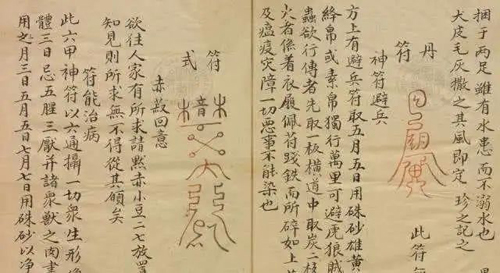 捆于两足雖有水患而不溺水也
大皮毛灰撒之其風即定 珍之記之
丹符
此符
神符避兵
方上有避兵符取五月五日用硃砂雄黄
絳帛或素帛獨行萬里可避虎狼賊
蟲欲行傳者先取一板橫道中取炭二枝
火者係着衣履佩符踐鉄而所辟如上
及瘟疫灾障一切悪事不能染也
符式
赤数回意
欲往人家有所求請黙赤小豆二七放置
知見則所求無不得從其傾矣
符能治病
此六甲神符以六通攝一切衆生形像
體三日忌五腥三厭并諸衆獸之肉書
用之月三日五月五日七月七日用硃砂以净